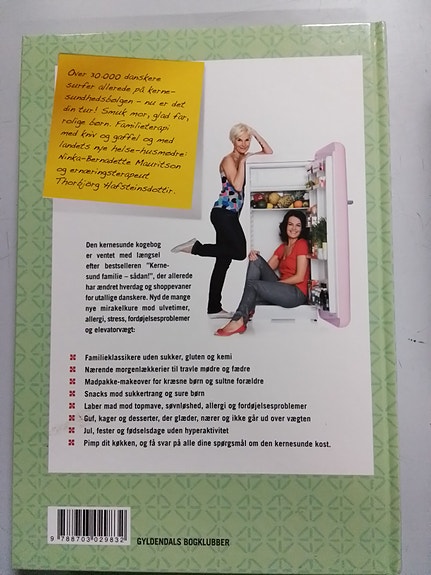 Over 30.000 danskere
surfer allerede på kerne-
sundhedsbølgen – nu er det
din tur! Smuk mor, glad far,
rolige børn. Familieterapi
med kniv og gaffel og med
landets nye helse-husmødre:
Ninka-Bernadette Mauritson
og ernæringsterapeut
Thorbjörg Hafsteinsdottir.
Den kernesunde kogebog
er ventet med længsel
efter bestselleren "Kerne-
sund familie – sådan!", der allerede
har ændret hverdag og shoppevaner
for utallige danskere. Nyd de mange
nye mirakelkure mod ulvetimer,
allergi, stress, fordøjelsesproblemer
og elevatorvægt:
Familieklassikere uden sukker, gluten og kemi
Nærende morgenlækkerier til travle mødre og fædre
Madpakke-makeover for kræsne børn og sultne forældre
Snacks mod sukkertrang og sure børn
Laber mad mod topmave, søvnløshed, allergi og fordøjelsesproblemer
Guf, kager og desserter, der glæder, nærer og ikke går ud over vægten
Jul, fester og fødselsdage uden hyperaktivitet
Pimp dit køkken, og få svar på alle dine spørgsmål om den kernesunde kost.
9 788703 029832
GYLDENDALS BOGKLUBBER